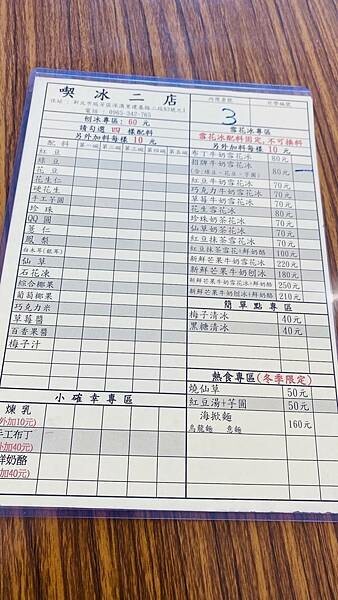 喫冰二店
內用桌號
外帶編號
電話：0965-342-765
3
刨冰專區：60 元
請勾選 四 樣配料
另外加料每樣 10 元
配料 第一碗 第二碗 第三碗 第四碗 第五碗
紅豆
綠豆
花豆
花生仁
硬花生
手工芋圓
珍珠
QQ圓
薏仁
鳳梨
白木耳(銀耳)
仙草
石花凍
綜合椰果
葡萄椰果
巧克力米
草莓醬
百香果醬
梅子汁
小確幸專區
煉乳
外加10元)
手工布丁
外加40元)
鮮奶酪
加40元)
雪花冰專區
雪花冰配料固定,不可換料
另外加料每樣 10 元
布丁牛奶雪花冰 80元
招牌牛奶雪花冰
(含:綠豆、花豆、芋圓) 80元
花生牛奶雪花冰 70元
紅豆牛奶雪花冰 70元
巧克力牛奶雪花冰 70元
草莓牛奶雪花冰 70元
花生奶茶雪花冰 70元
珍珠奶茶雪花冰 70元
仙草奶茶雪花冰 70元
紅豆抹茶雪花冰 70元
紅豆抹茶雪花冰+鮮奶酪 100元
新鮮芒果牛奶雪花冰 220元
新鮮芒果牛奶刨冰 180元
新鮮芒果牛奶雪花冰+鮮奶酪 250元
新鮮芒果牛奶刨冰+鮮奶酪 210元
簡單點專區
梅子清冰 40元
黑糖清冰 40元
熱食專區(冬季限定)
燒仙草 50元
紅豆湯+芋圓 50元
海掀麵
烏龍麵 意麵 160元